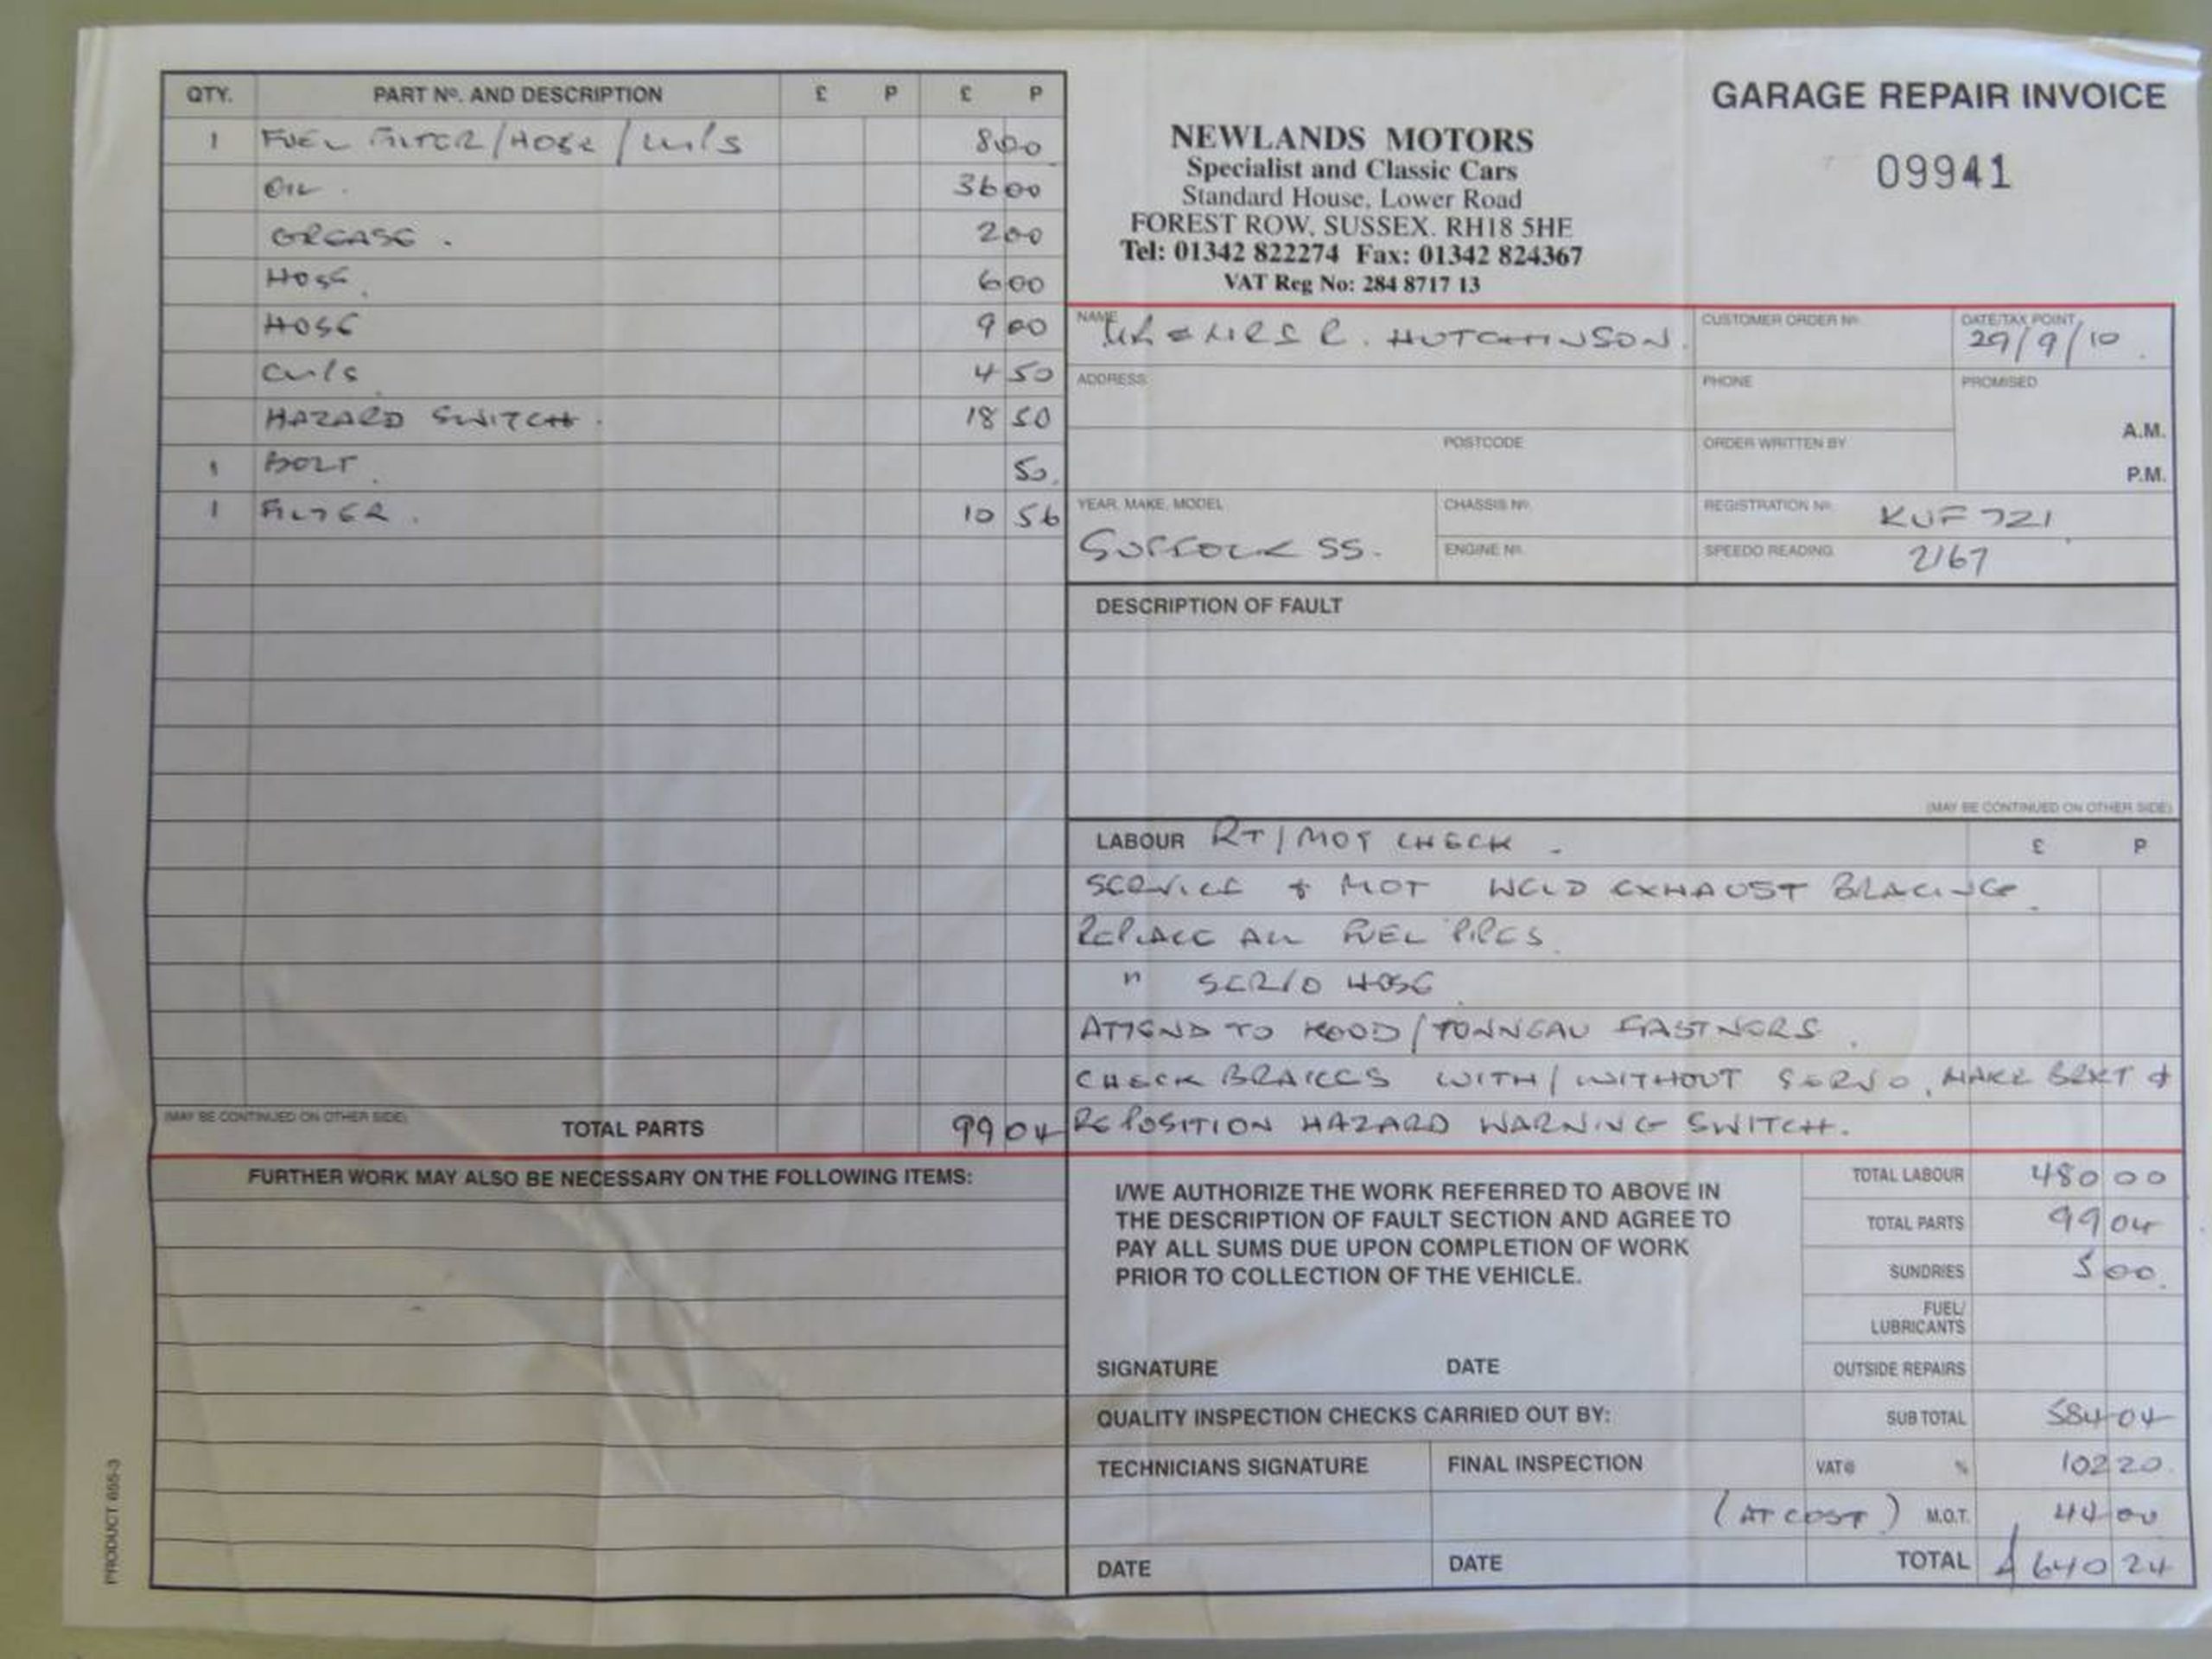 QTY. PART Nº. AND DESCRIPTION £ P £ P
1 FUEL FILTER/HOSE/ 8 00
OIL. 36 00
GREASE. 2 00
HOSE. 6 00
HOSE 9 00
4 50
HAZARD SWITCH. 18 50
1 BOLT. 50.
1 FILTER. 10 56
(MAY BE CONTINUED ON OTHER SIDE) TOTAL PARTS 99 04
FURTHER WORK MAY ALSO BE NECESSARY ON THE FOLLOWING ITEMS:
PRODUCT 655-3
GARAGE REPAIR INVOICE
09941
NEWLANDS MOTORS
Specialist and Classic Cars
Standard House, Lower Road
FOREST ROW, SUSSEX. RH18 5HE
Tel: 01342 822274 Fax: 01342 824367
VAT Reg No: 284 8717 13
NAME MR & MRS R. HUTCHINSON. CUSTOMER ORDER Nº. DATE/TAX POINT 29/9/10
ADDRESS PHONE PROMISED
A.M.
POSTCODE ORDER WRITTEN BY
P.M.
YEAR, MAKE, MODEL CHASSIS Nº. REGISTRATION Nº. KUF 721
SUFFOLK SS. ENGINE Nº. SPEEDO READING 2167
DESCRIPTION OF FAULT
(MAY BE CONTINUED ON OTHER SIDE)
LABOUR RT/MOT CHECK - £ P
SERVICE & MOT WELD EXHAUST BRACING.
REPLACE ALL FUEL PIPES.
" SERVO HOSE
ATTEND TO HOOD/TONNEAU FASTNERS.
CHECK BRAKES WITH/WITHOUT SERVO, MAKE BRKT &
REPOSITION HAZARD WARNING SWITCH.
I/WE AUTHORIZE THE WORK REFERRED TO ABOVE IN
THE DESCRIPTION OF FAULT SECTION AND AGREE TO
PAY ALL SUMS DUE UPON COMPLETION OF WORK
PRIOR TO COLLECTION OF THE VEHICLE.
SIGNATURE DATE
QUALITY INSPECTION CHECKS CARRIED OUT BY:
TECHNICIANS SIGNATURE FINAL INSPECTION
DATE DATE
TOTAL LABOUR 480 00
TOTAL PARTS 99 04
SUNDRIES 5 00.
FUEL/
LUBRICANTS
OUTSIDE REPAIRS
SUB TOTAL 584 04
VAT@ % 102 20.
(AT COST) M.O.T. 44 00
TOTAL £ 640 24